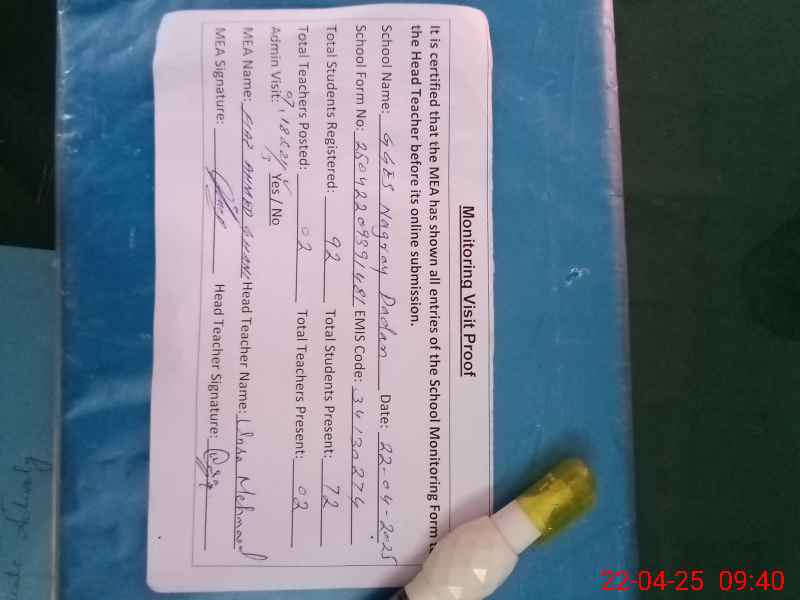 Monitoring Visit Proof
It is certified that the MEA has shown all entries of the School Monitoring Form to
the Head Teacher before its online submission.
School Name: GGES Nagray Dadan Date: 22-04-2025
School Form No: 2504220939148 EMIS Code: 34130274
Total Students Registered: 92 Total Students Present: 72
Total Teachers Posted: 02 Total Teachers Present: 02
Admin Visit: Yes / No
MEA Name: AHMED Head Teacher Name: Mehmood
MEA Signature: Head Teacher Signature:
22-04-25 09:40